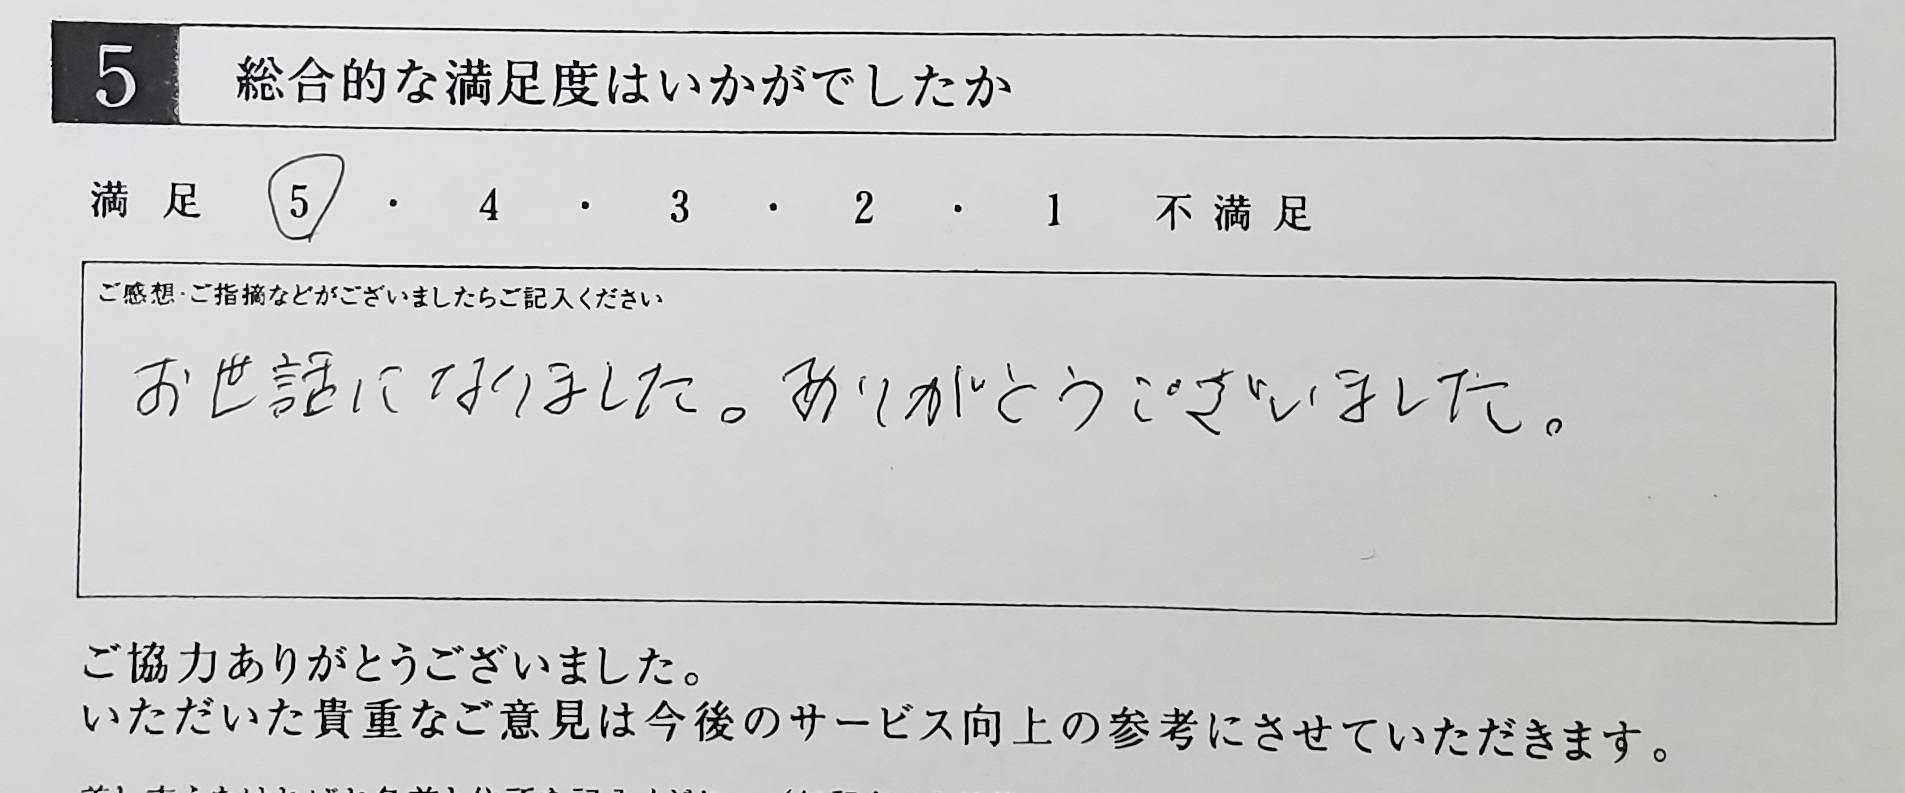 5 総合的な満足度はいかがでしたか
満足 5 ・ 4 ・ 3 ・ 2 ・ 1 不満足
ご感想・ご指摘などがございましたらご記入ください
お世話になりました。ありがとうございました。
ご協力ありがとうございました。
いただいた貴重なご意見は今後のサービス向上の参考にさせていただきます。